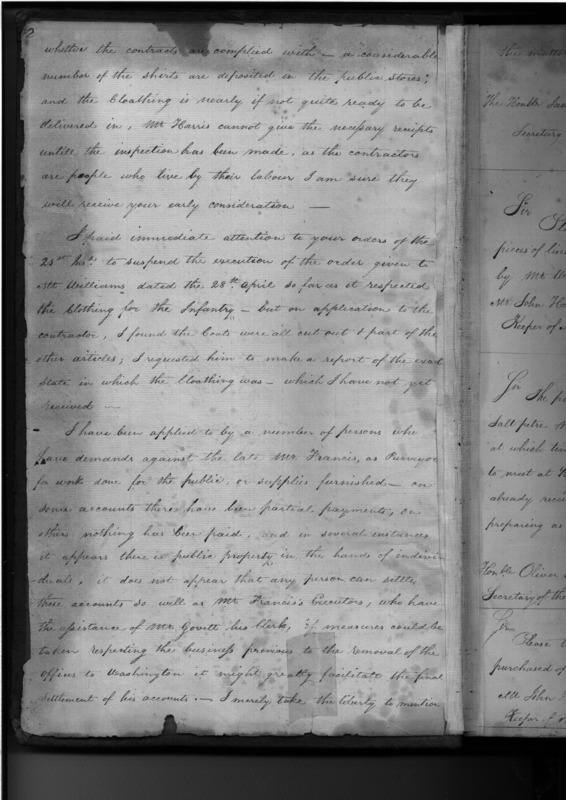 2
whether the contracts are complied with – a considerable
number of the shirts are deposited in the public stores;
and the Cloathing is nearly if not quite ready to be
delivered in, Mr Harris cannot give the necessary receipts
untill the inspection has been made. as the contractors
are people who live by their labour I am sure they
will receive your early consideration —
I paid immediate attention to your orders of the
to suspend the execution of the order given to
Mr Williams dated the 28th April so far as it respected
the Clothing for the Infantry – but on application to the
contractor, I found the Coats were all cut out & part of the
other articles; I requested him to make a report of the exact
state in which the Cloathing was – which I have not yet
received –
I have been applied to by a number of persons who
have demands against the late Mr. Francis, as Purveyor
for work done for the public, or supplies furnished – on
some accounts there have been partial payments, on
others nothing has been paid, and in several instances
it appears there is public property in the hands of indivi
duals, it does not appear that any person can settle
these accounts so well as Mr Francis's Executors, who have
the assistance of Mr. Govett his Clerk, If measures could be
taken respecting the business previous to the removal of the
offices to Washington it might greatly facilitate the final
settlement of his accounts. – I merely take the liberty to mention
the
The Honble
Secretary
Sir
pieces of
by Mr
Mr John
Keeper of
Sir
The
Salt petre
at which
to meet at
already
preparing as
Honble Oliver
Secretary of the
Sir
Please
purchased of
Mr John
Keeper of